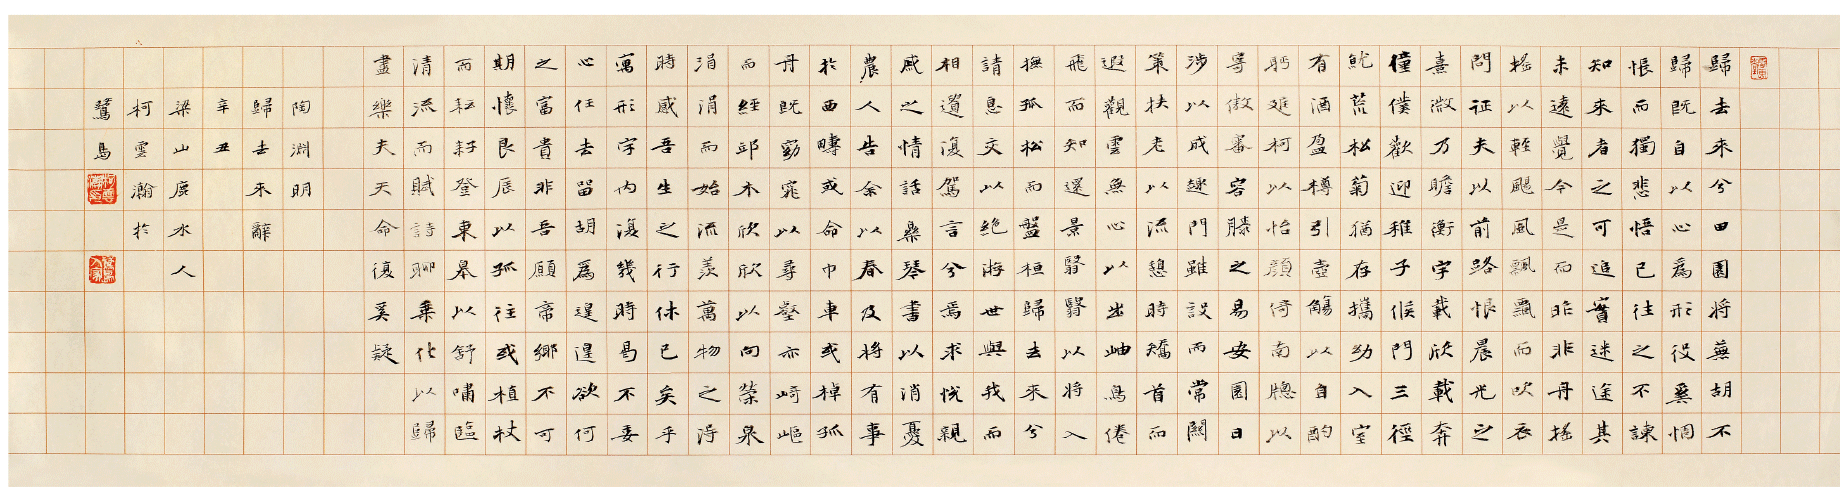 歸去来兮田園将蕪胡不
歸既自以心為形役奚惆
悵而獨悲悟已往之不諫
知来者之可追實迷途其
未遠覺今是而昨非舟搖
搖以輕颺風飄飄而吹衣
問征夫以前路恨晨光之
熹微乃瞻衡宇載欣載奔
僮僕歡迎稚子候門三徑
就荒松菊猶存攜幼入室
有酒盈樽引壺觴以自酌
眄庭柯以怡顏倚南牕以
寄傲審容膝之易安園日
涉以成趣門雖設而常關
策扶老以流憩時矯首而
遐觀雲無心以出岫鳥倦
飛而知還景翳翳以将入
撫孤松而盤桓歸去来兮
請息交以絕游世與我而
相遺復駕言兮焉求悅親
戚之情話樂琴書以消憂
農人告余以春及将有事
於西疇或命巾車或棹孤
舟既窈窕以尋壑亦崎嶇
而經邱木欣欣以向榮泉
涓涓而始流羨萬物之得
時感吾生之行休已矣乎
寓形宇內復幾時曷不委
心任去留胡為遑遑欲何
之富貴非吾願帝鄉不可
期懷良辰以孤往或植杖
而耘耔登東皋以舒嘯臨
清流而賦詩聊乘化以歸
盡樂夫天命復奚疑
陶淵明
歸去来辭
辛丑
梁山廣水人
柯雲瀚於
鷺島